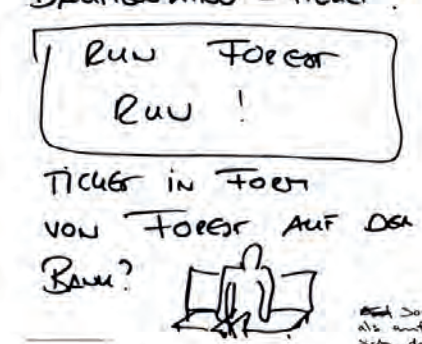 - TICKET!
RUN FOREST
RUN !
TICKET IN FORM
VON FOREST AUF DER
BANK?
als